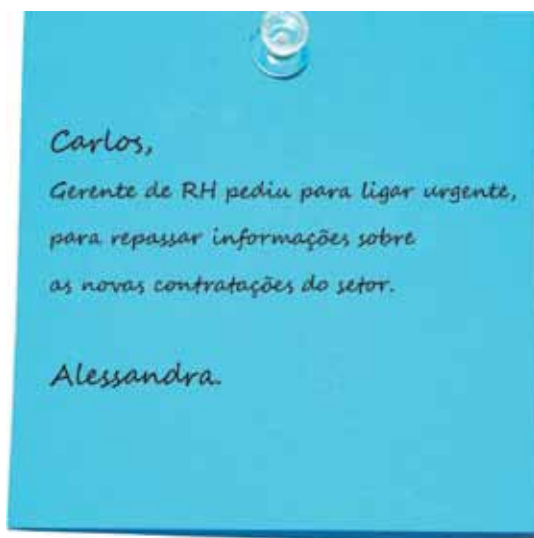 Carlos,
Gerente de RH pediu para ligar urgente,
para repassar informações sobre
as novas contratações do setor.
Alessandra.